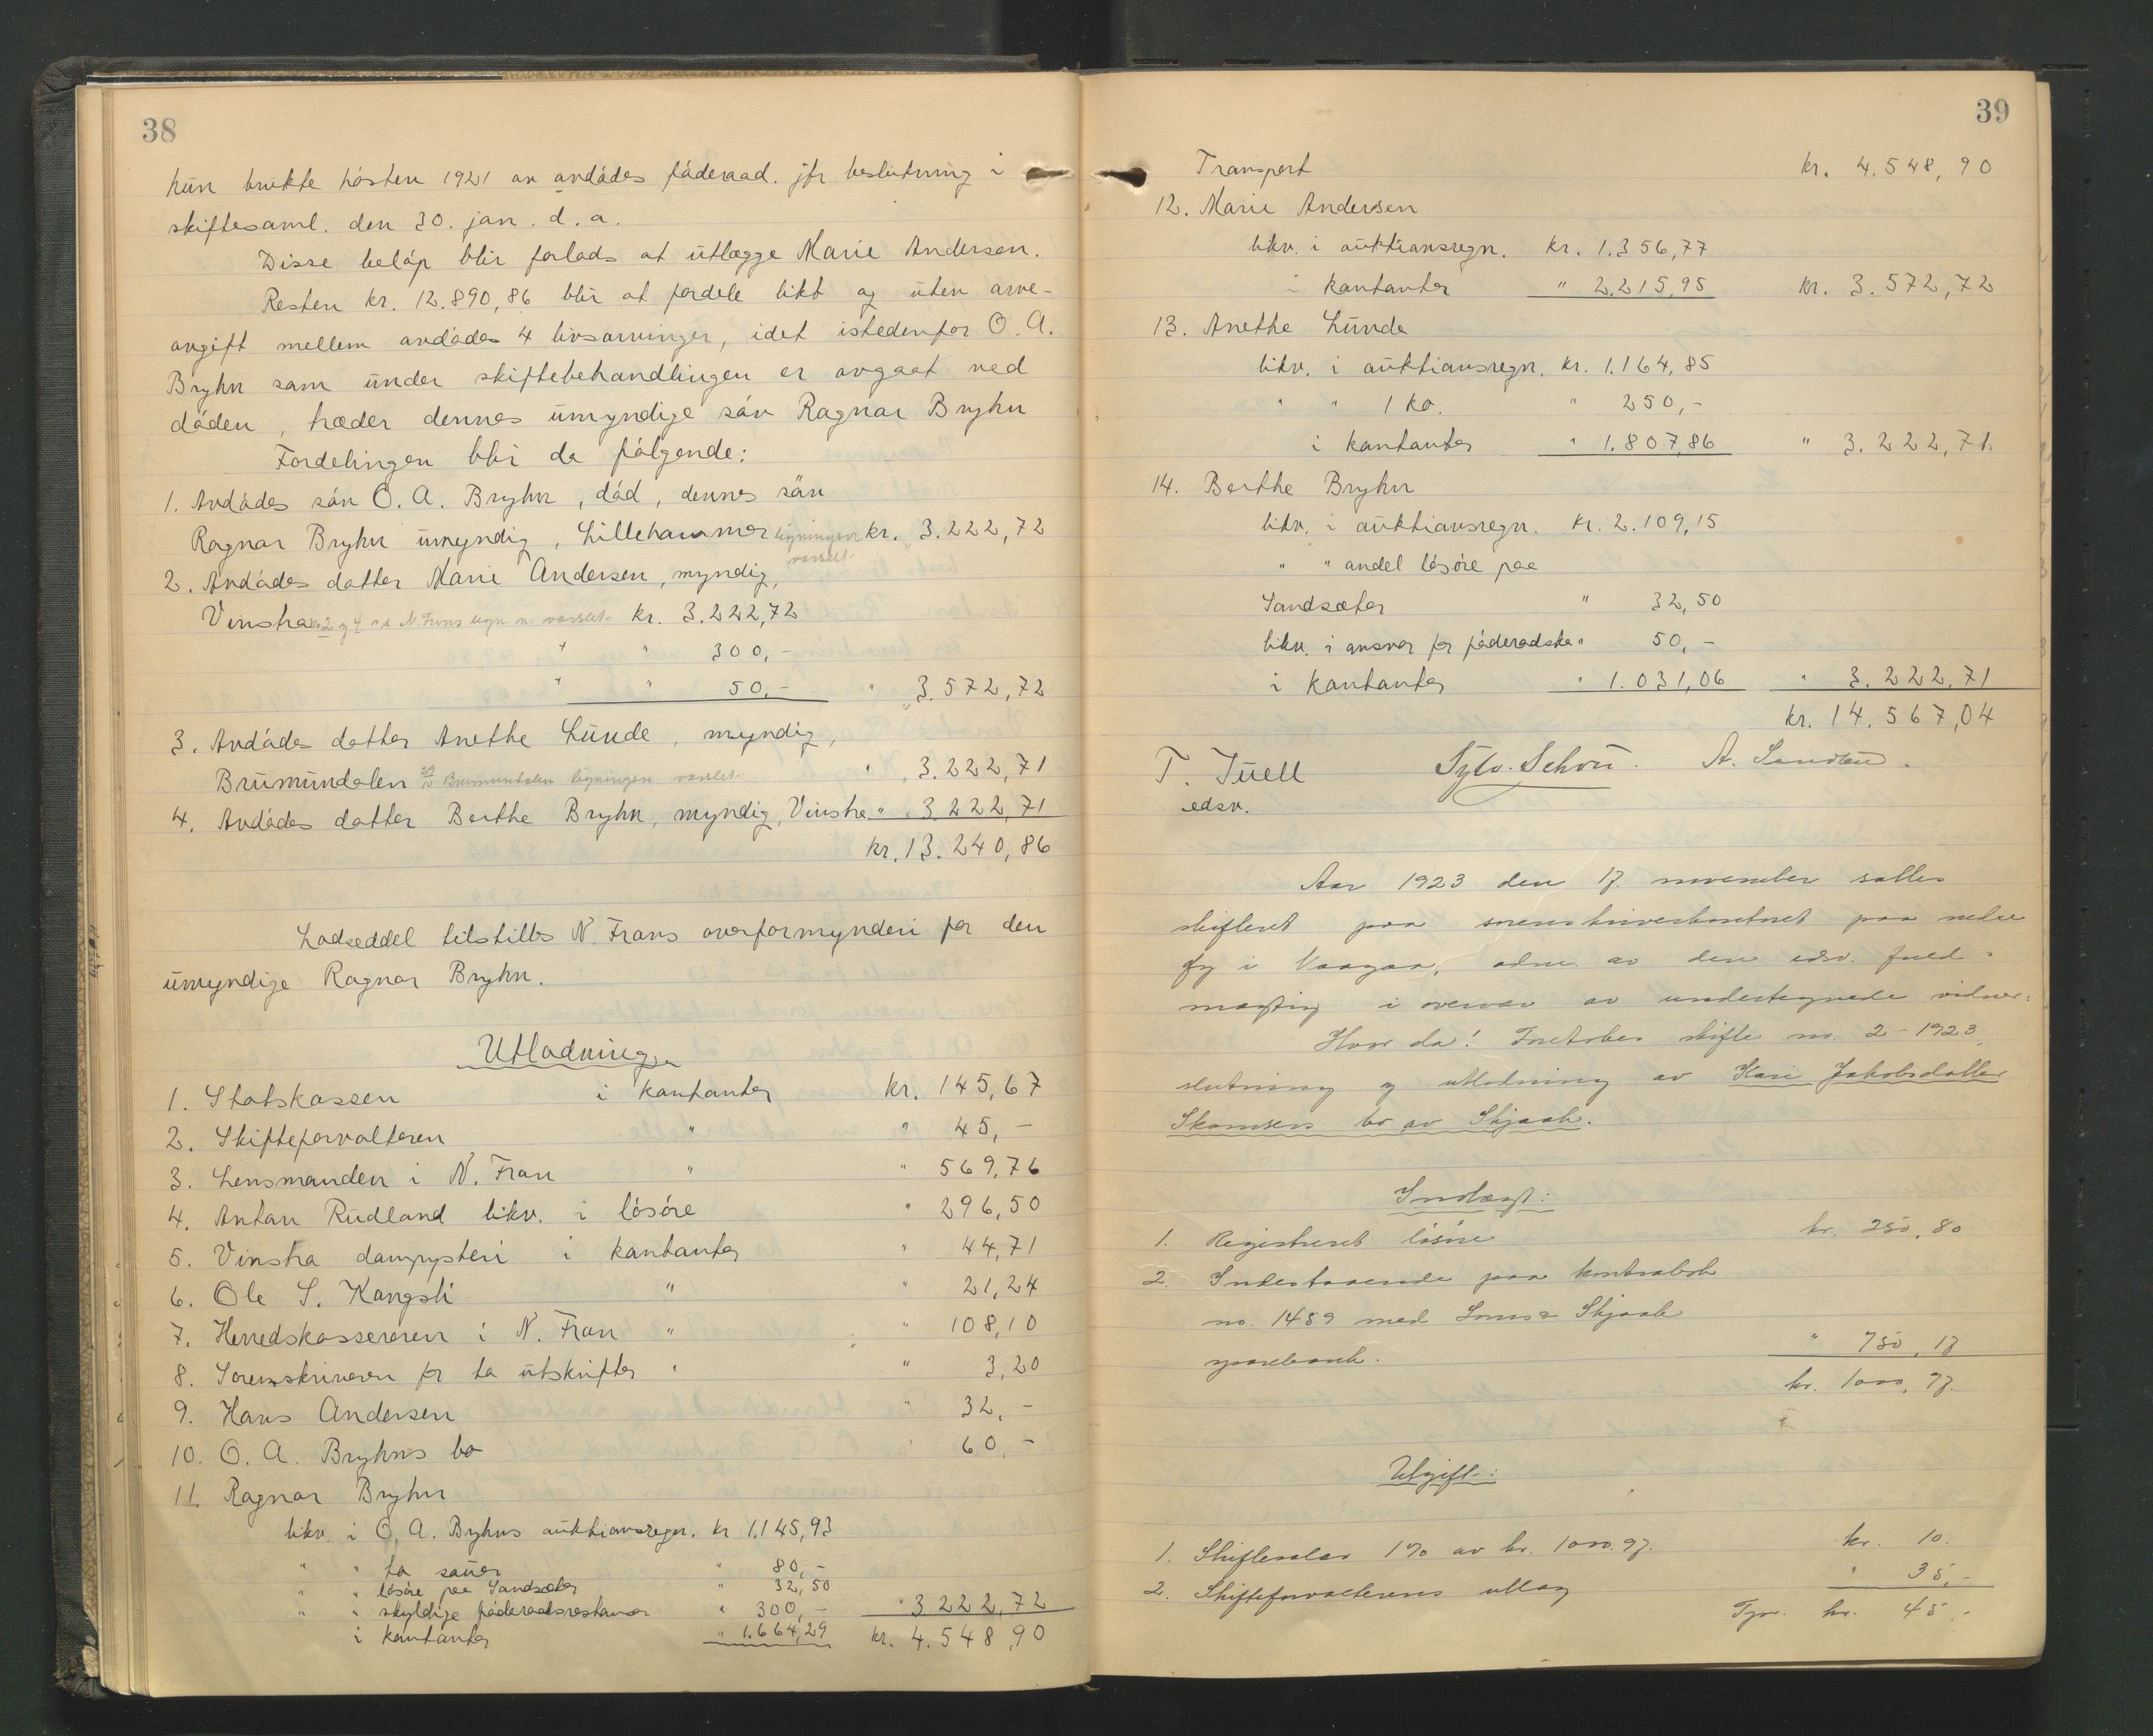 38
hun brukte hösten 1921 av avdödes föderaad. jfr beslutning i
skiftesaml. den 30. jan. d. a.
Disse beløp blir forlods at utlægge Marie Andersen.
Resten kr. 12.890,86 blir at fordele likt og uten arve-
avgift mellem avdödes 4 livsarvinger, idet istedenfor O. A.
Bryhn som under skiftebehandlingen er avgaat ved
döden, træder dennes umyndige sön Ragnar Bryhn
Fordelingen blir da fölgende:
1. Avdödes sön O. A. Bryhn, död, dennes sön
Ragnar Bryhn umyndig, Lillehammer ligningen varslet. kr. 3.222,72
2. Avdödes datter Marie Andersen, myndig,
Vinstra 2 og 4 N. Frons lign. varslet. kr. 3.222,72
+ " 300,-
+ " 50,- " 3.572,72
3. Avdödes datter Anethe Lunde, myndig,
Brumundalen Brumundalen ligningen varslet. " 3.222,71
4. Avdödes datter Berthe Bryhn, myndig, Vinstra " 3.222,71
kr. 13.240,86
Lodseddel tilstilles N. Frons overformynderi for den
umyndige Ragnar Bryhn.
Utlodning
1. Statskassen i kontanter kr. 145,67
2. Skifteforvalteren " " 45,-
3. Lensmanden i N. Fron " " 569,76
4. Anton Rudland likv. i lösöre " 296,50
5. Vinstra dampysteri i kontanter " 44,71
6. Ole S. Kongsli " " 21,24
7. Herredskassereren i N. Fron " " 108,10
8. Sorenskriveren for to utskrifter " " 3,20
9. Hans Andersen " 32,-
10. O. A. Bryhns bo " 60,-
11. Ragnar Bryhn
likv. i O. A. Bryhns auktionsregn. kr 1.145,93
" " to sauer " 80,-
" " lösöre paa Sandsæter " 32,50
" " skyldige föderaadsrestanser " 300,- " 3.222,72
i kontanter " 1.664,29 kr. 4.548,90
39
Transport kr. 4.548,90
12. Marie Andersen
likv. i auktionsregn. kr. 1.356,77
i kontanter " 2.215,95 kr. 3.572,72
13. Anethe Lunde
likv. i auktionsregn. kr. 1.164,85
" " 1 ko. " 250,-
i kontanter " 1.807,86 " 3.222,71
14. Berthe Bryhn
likv. i auktionsregn. kr. 2.109,15
" " andel lösöre paa
Sandsæter " 32,50
likv. i ansvar for föderadsko " 50,-
i kontanter " 1.031,06 " 3.222,71
kr. 14.567,04
T. Juell Sylv. Schou. A. Sandbu.
edsv.
Aar 1923 den 17. november sattes
skifteret paa sorenskriverkontoret paa nedre
Sy i Vaagaa, adm. av den edsv. fuld-
mægtig i overvær av undertegnede vidner:
Hvor da! Foretokes skifte nr. 2 - 1923,
slutning og utlodning av Kari Jakobsdatter
Skamsers bo av Skjaak.
Indtægt:
1. Registreret lösöre kr. 250,80
2. Indestaaende paa kontrabok
no. 1459 med Loms & Skjaak
sparebank. " 750,17
kr. 1000,97.
Utgift:
1. Skiftesalær 1% av kr. 1000.97. kr. 10.
2. Skifteforvalterens utlæg " 35,-
Tpr. kr. 45.-